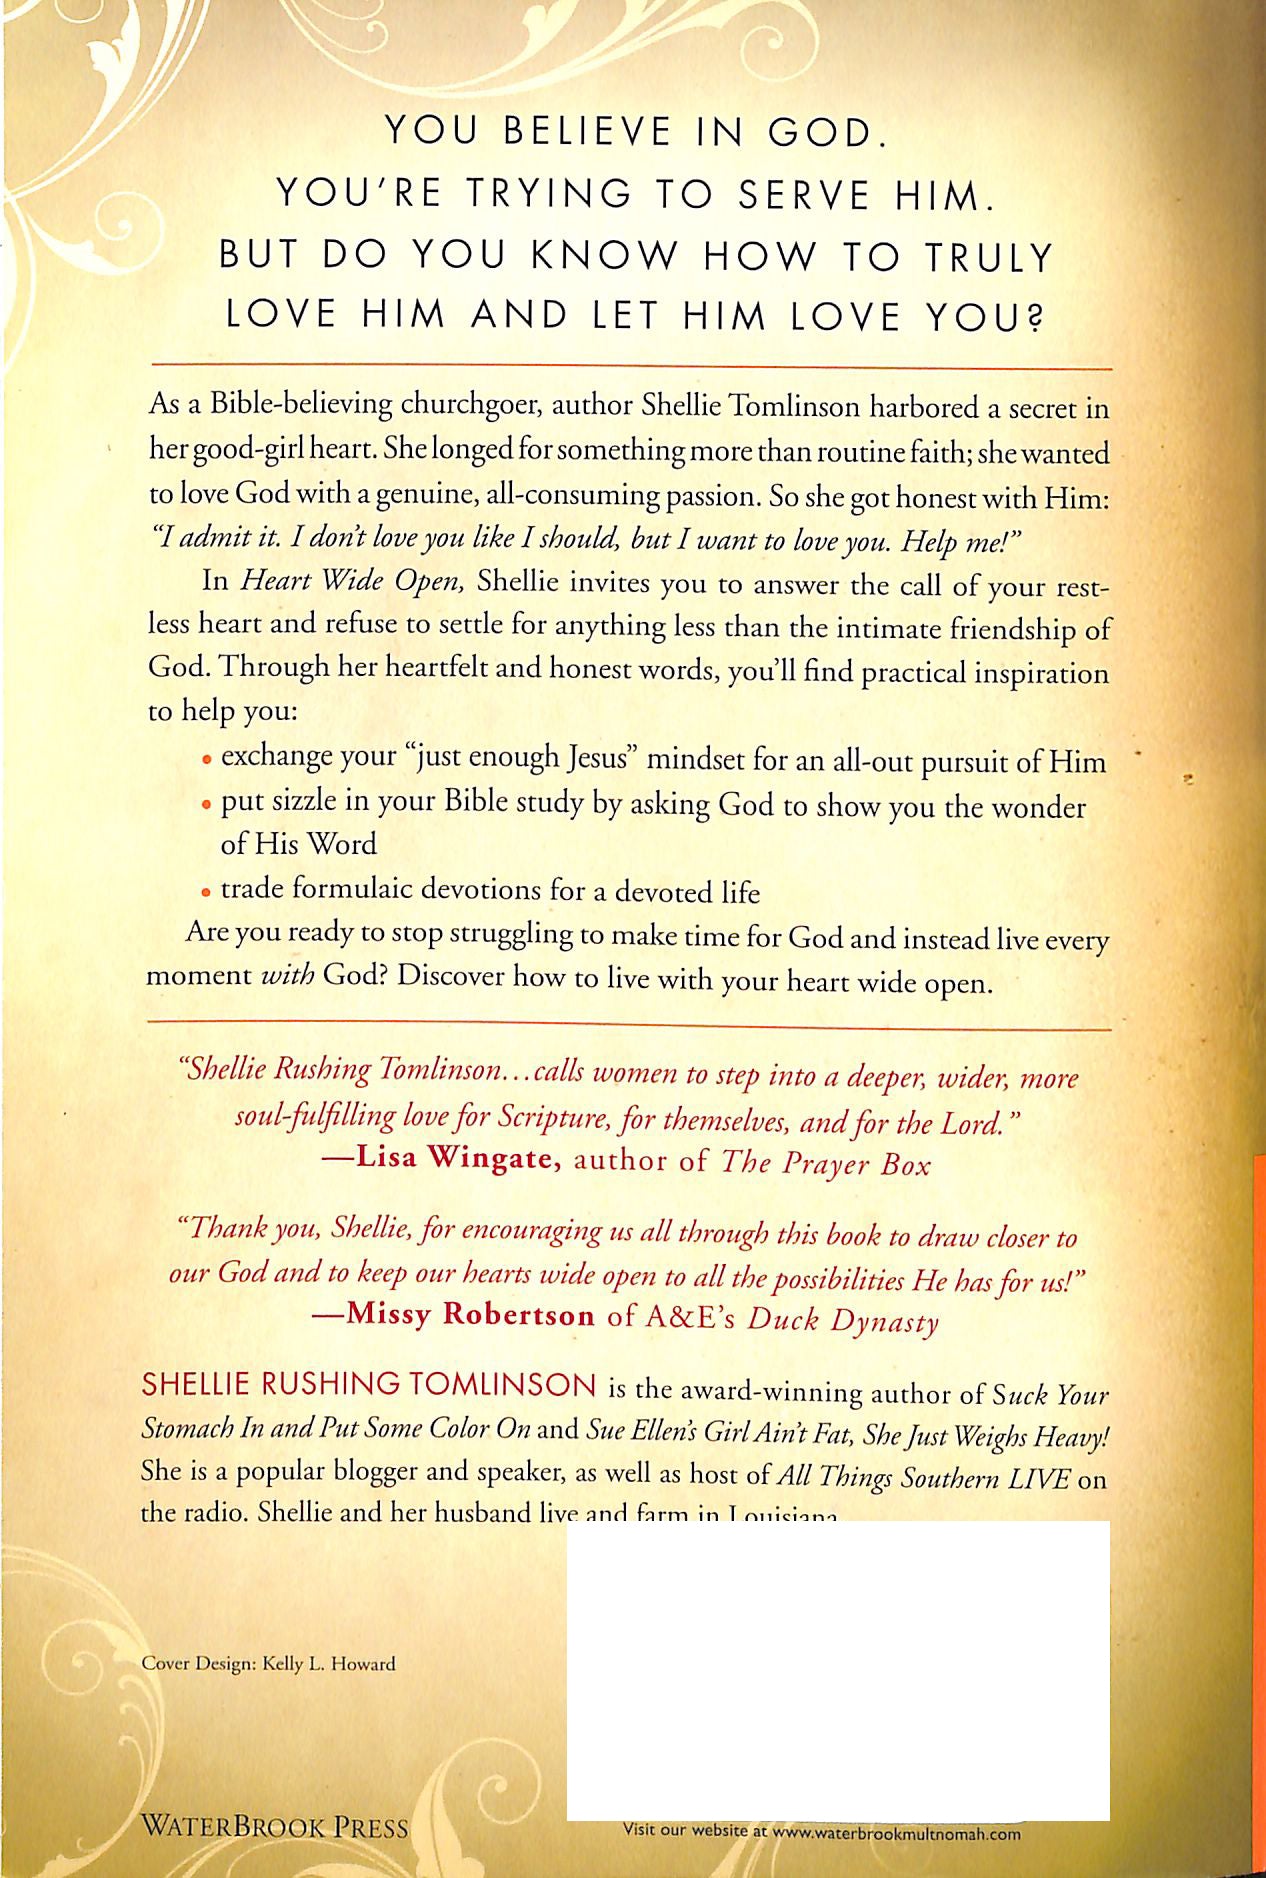 YOU BELIEVE IN GOD.
YOU'RE TRYING TO SERVE HIM.
BUT DO YOU KNOW HOW TO TRULY
LOVE HIM AND LET HIM LOVE YOU?
As a Bible-believing churchgoer, author Shellie Tomlinson harbored a secret in
her good-girl heart. She longed for something more than routine faith; she wanted
to love God with a genuine, all-consuming passion. So she got honest with Him:
“I admit it. I don't love you like I should, but I want to love you. Help me!”
In Heart Wide Open, Shellie invites you to answer the call of your rest-
less heart and refuse to settle for anything less than the intimate friendship of
God. Through her heartfelt and honest words, you'll find practical inspiration
to help you:
• exchange your “just enough Jesus” mindset for an all-out pursuit of Him
• put sizzle in your Bible study by asking God to show you the wonder
of His Word
• trade formulaic devotions for a devoted life
Are you ready to stop struggling to make time for God and instead live every
moment with God? Discover how to live with your heart wide open.
“Shellie Rushing Tomlinson...calls women to step into a deeper, wider, more
soul-fulfilling love for Scripture, for themselves, and for the Lord.”
—Lisa Wingate, author of The Prayer Box
“Thank you, Shellie, for encouraging us all through this book to draw closer to
our God and to keep our hearts wide open to all the possibilities He has for us!”
—Missy Robertson of A&E's Duck Dynasty
SHELLIE RUSHING TOMLINSON is the award-winning author of Suck Your
Stomach In and Put Some Color On and Sue Ellen's Girl Ain't Fat, She Just Weighs Heavy!
She is a popular blogger and speaker, as well as host of All Things Southern LIVE on
the radio. Shellie and her husband live and farm in Louisiana
Cover Design: Kelly L. Howard
WATERBROOK PRESS
Visit our website at www.waterbrookmultnomah.com